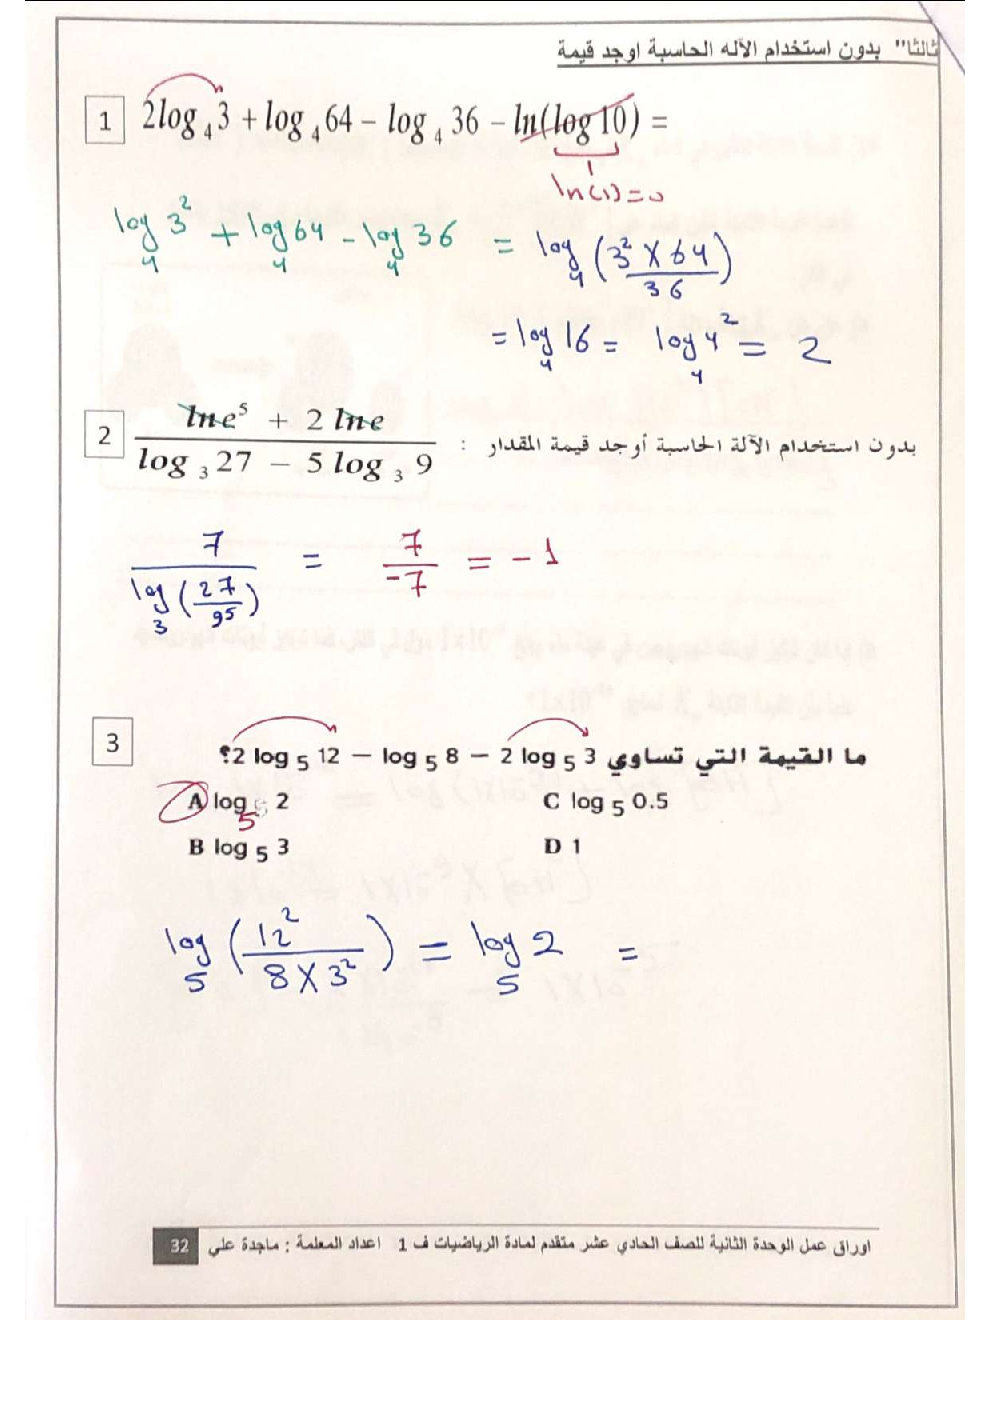 ثالثا" بدون استخدام الآله الحاسبة اوجد قيمة
1 2log₄3 + log₄64 − log₄36 − ln(log10) =
1
ln(1)=0
log₄3² + log₄64 − log₄36 = log₄(3² × 64 / 36)
= log₄16 = log₄4² = 2
2 (lne⁵ + 2 lne) / (log₃27 − 5 log₃9) : بدون استخدام الآلة الحاسبة أوجد قيمة المقدار
7 / log₃(27/9⁵) = 7/-7 = -1
3 ما القيمة التي تساوي 2 log₅12 − log₅8 − 2 log₅3؟
A log₅ 2 C log₅ 0.5
B log₅ 3 D 1
log₅(12² / 8×3²) = log₅2 =
اوراق عمل الوحدة الثانية للصف الحادي عشر متقدم لمادة الرياضيات ف 1 اعداد المعلمة : ماجدة علي 32